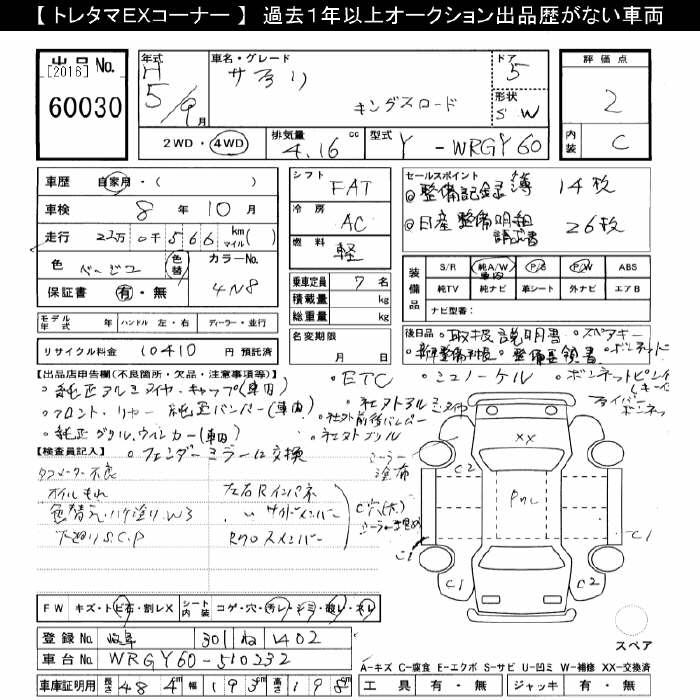 【 トレタマEXコーナー 】 過去１年以上オークション出品歴がない車両
出品 No.
[2016]
60030
年式
H 5/9 月
車名・グレード
サファリ
キングスロード
ドア
5
形状
S W
評価点
2
内装
C
2WD・4WD
排気量
4.16 cc
型式
Y - WRGY60
車歴
自家用・( )
車検
8 年 10 月
走行
23万 0千 566 km マイル ( )
色
ベージュ
色替
カラーNo.
4N8
保証書
有・無
シフト
FAT
冷房
AC
燃料
軽
乗車定員 7 名
積載量 kg
総重量 kg
名変期限
月 日
セールスポイント
◎整備記録簿 14枚
◎日産整備明細請求書 26枚
装備品
S/R 純A/W P/S P/W ABS
車内
純TV 純ナビ 革シート 外ナビ エアB
ナビ型番:
モデル年式 年 ハンドル 左・右 ディーラー・並行
リサイクル料金 10410 円預託済
後日品
・取扱説明書 ・スペアキー
・整備要領書
【出品店申告欄(不良箇所・欠品・注意事項等)】
・純正アルミタイヤ・キャップ(車内)
・ETC ・シュノーケル
・フロント、リヤー 純正バンパー(車内)
・社外アルミタイヤ
・社外前後バンパー
・純正グリル、ウィンカー(車内)
・社外グリル
・フェンダーミラーに交換
【検査員記入】
タコメーター不良
オイルもれ
色替え、ハケ塗り W3
下廻りS.C.P
左右Rインパネ
〃 サイドメンバー
Rクロスメンバー
C穴(大)
シーラー塗布
XX
C2
Pれし
C1
C1
C1
C2
スペア
FW キズ・トビ石・割レX シート内装 コゲ・穴・汚レ・シミ・破レ・スレ
登録No. 岐阜 301 ね 1402
車台No. WRGY60-510232
車庫証明用 長さ 484 幅 193 高さ 198 cm
A−キズ C−腐食 E−エクボ S−サビ U−凹ミ W−補修 XX−交換済
工具 有・無 ジャッキ 有・無